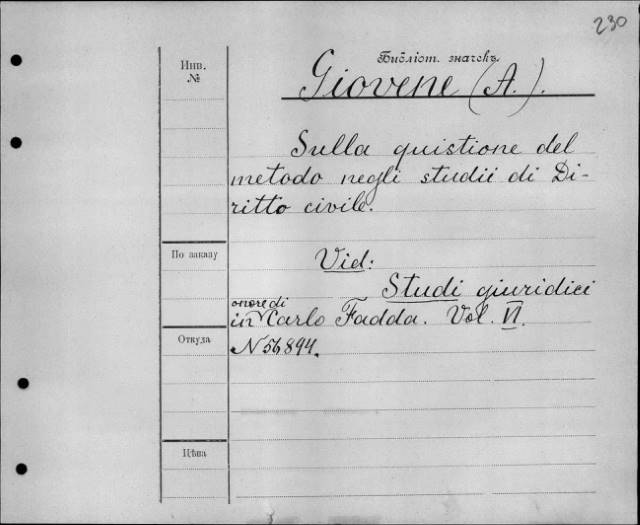 230
Библіот. значекъ
Инв.
№
Giovene (A.).
Sulla quistione del
metodo negli studii di Di-
ritto civile.
По заказу
Vid:
Studi giuridici
onore di
in Carlo Fadda. Vol. VI.
Откуда
N 56894.
Цѣна